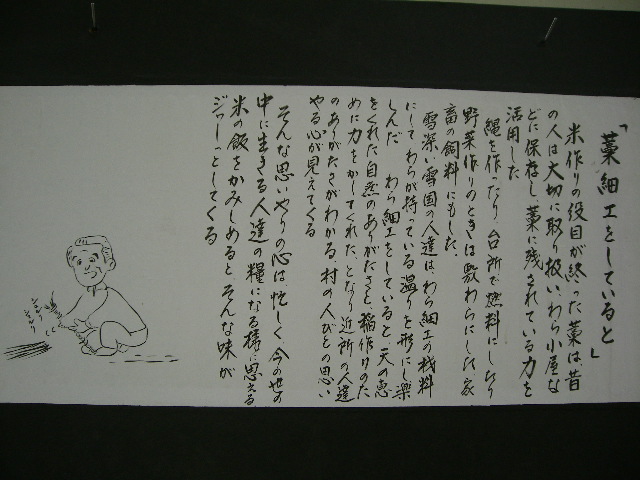 「藁細工をしていると」
米作りの役目が終った藁は、昔
の人は大切に取り扱い、わら小屋な
どに保存し、藁に残されている力を
活用した
縄を作ったり、台所で燃料にしたり
野菜作りのときは敷わらにした家
畜の飼料にもした。
雪深い雪国の人達は、わら細工の材料
にして わらが持っている温りを形にし楽
しんだ わら細工をしていると 天の恵
をくれた自然のありがたさと 稲作りのた
めに力をかしてくれた、となり近所の人達
のありがたさがわかる 村の人びとの思い
やる心が見えてくる
そんな思いやりの心は、忙しく、今の世の
中に生きる人達の糧になる様に思える
米の飯をかみしめると そんな味が
ジワーッとしてくる